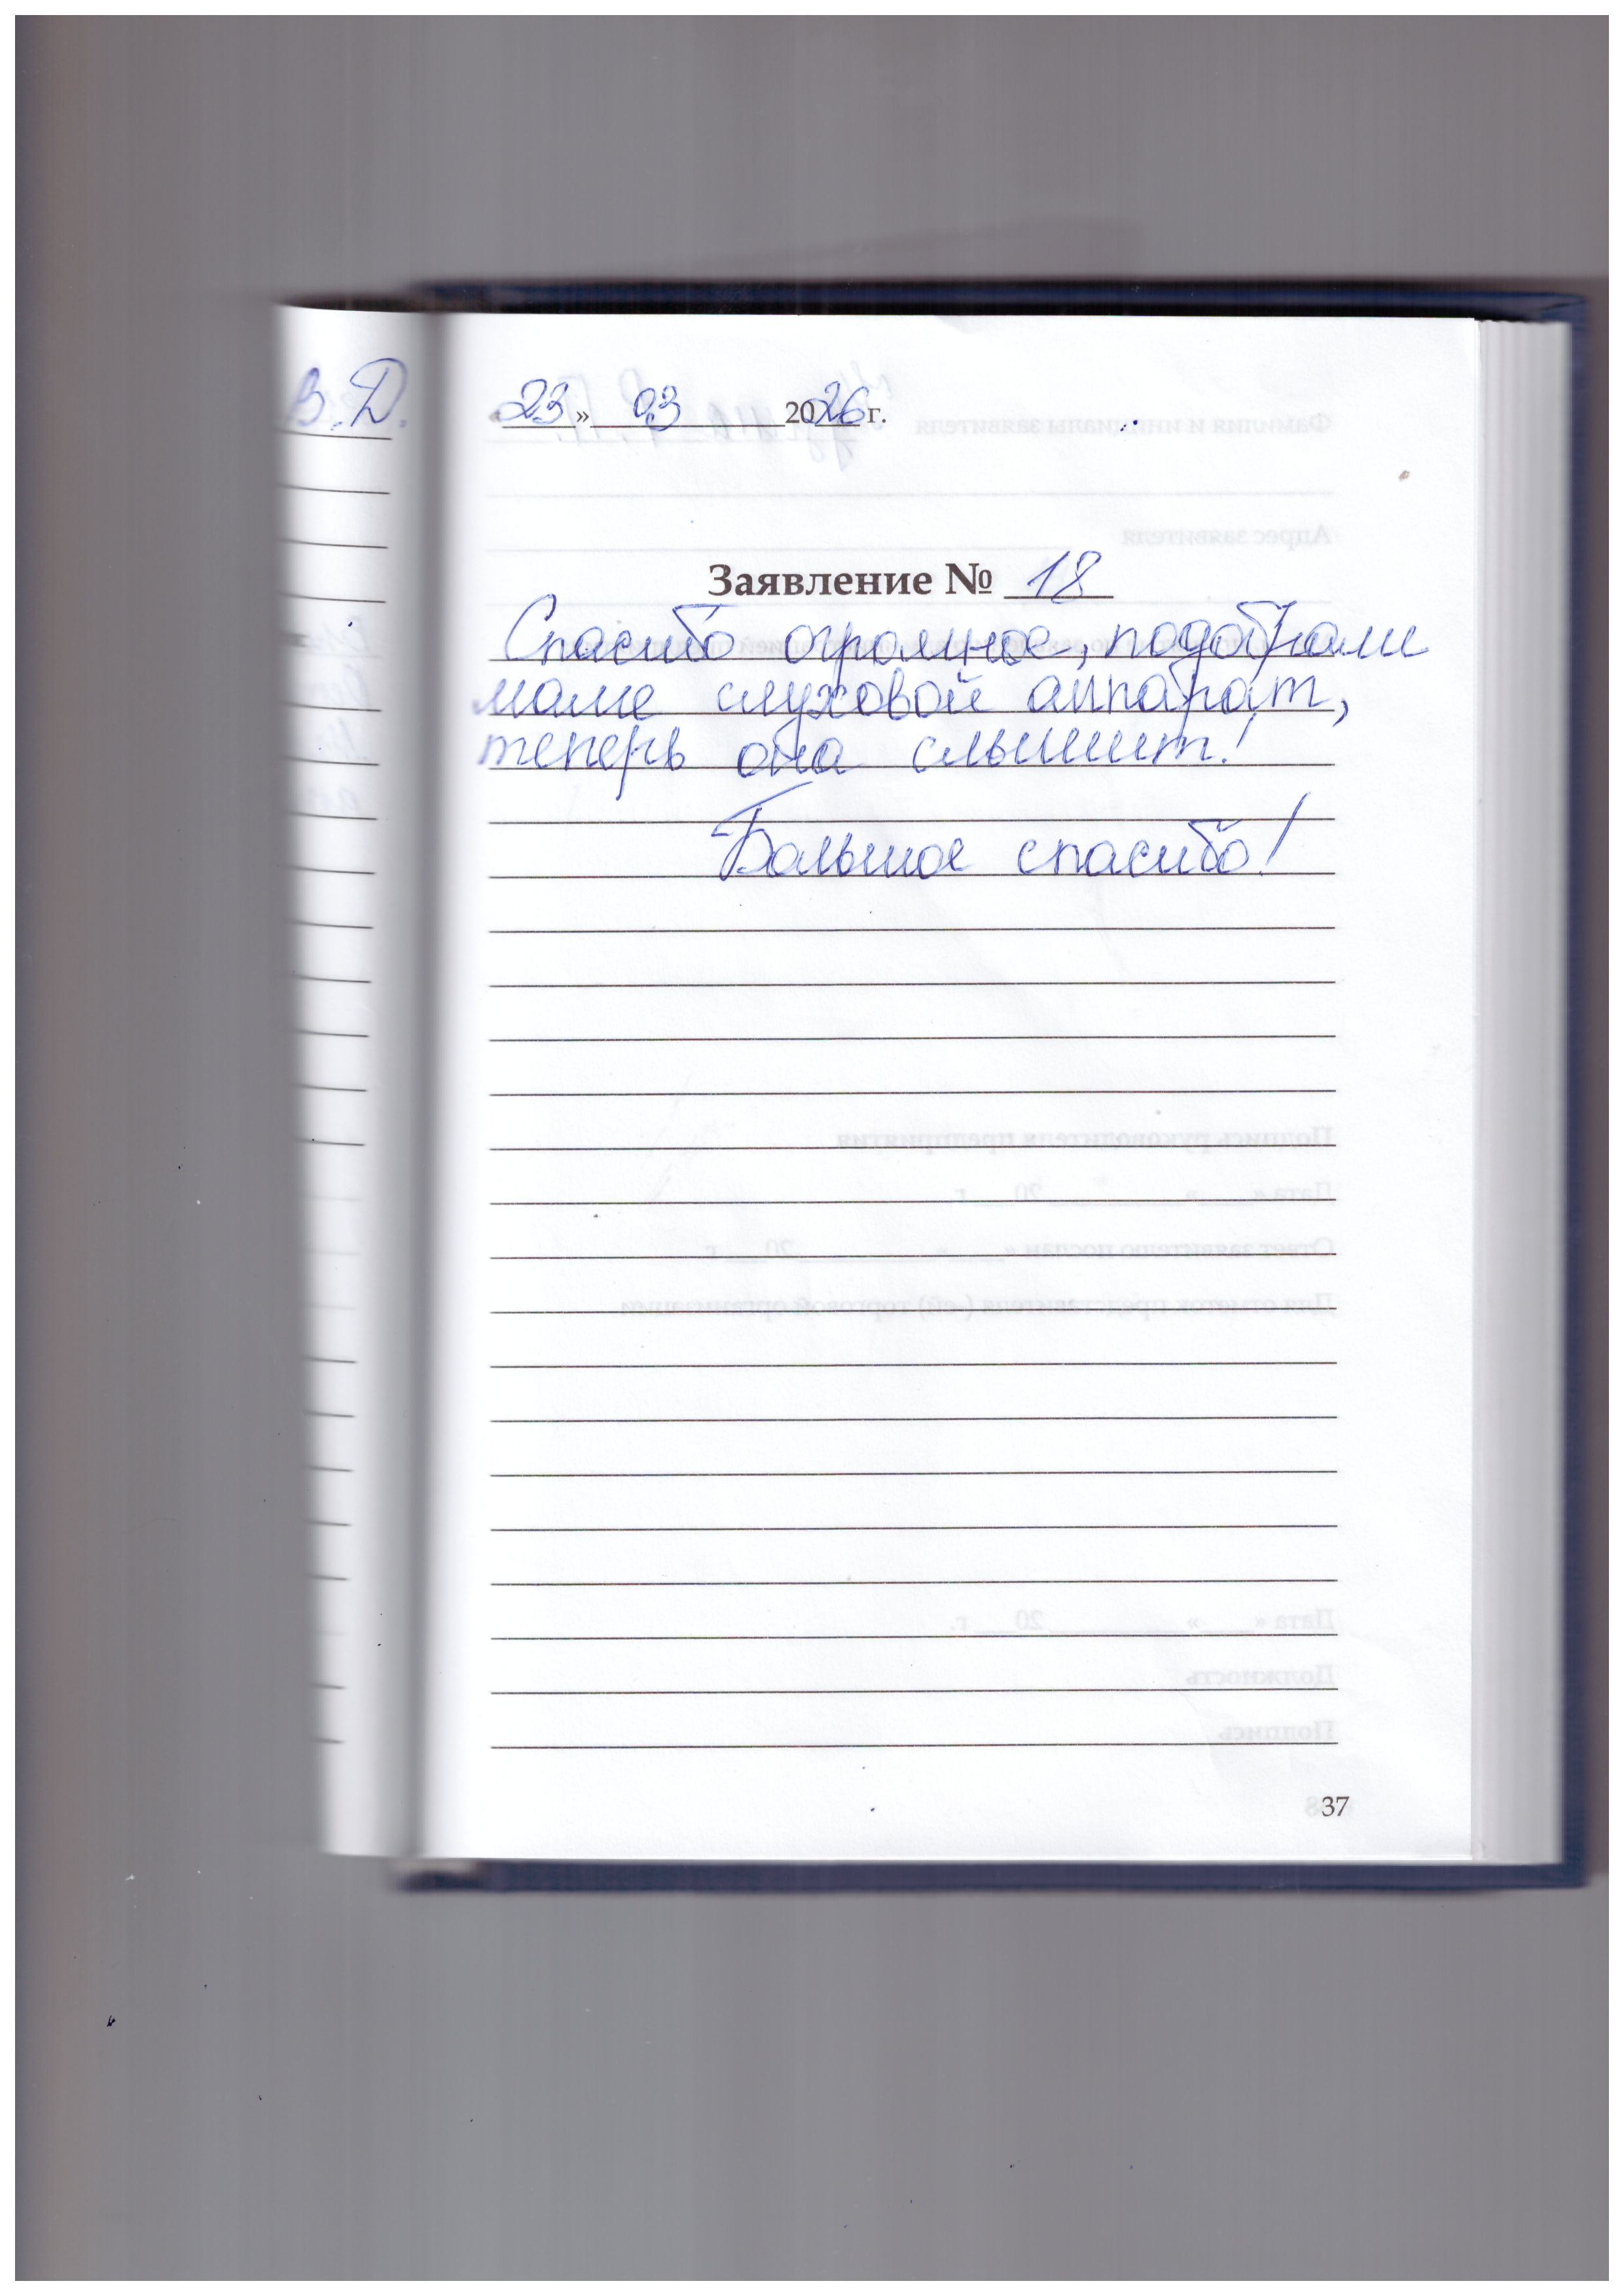 В.Д.
«23» 03 2026 г.
Заявление № 18
Спасибо огромное, подобрали
маме слуховой аппарат,
теперь она слышит!
Большое спасибо!
37